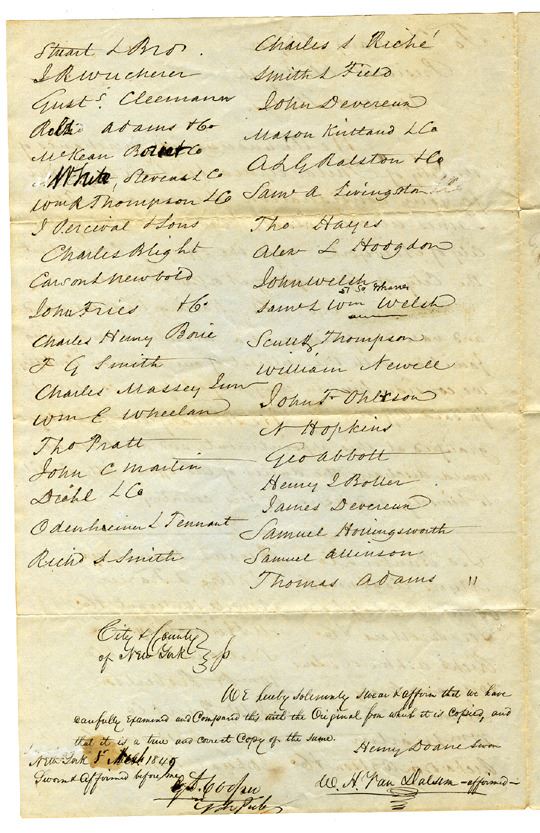 Stuart & Bro.
J R Wucherer
Gust S. Cleemann
Adams & Co
McKean Borie & Co
White, Stevens & Co
Wm R Thompson & Co
J Percival & Sons
Charles Blight
Carson & Newbold
John Fries & Co.
Charles Henry Borie
F G Smith
Charles Massey Junr
Wm E Wheelan
Tho Pratt
John C Martin
Diehl & Co
Odenheimer & Tennant
Richd S Smith
Charles S Riché
Smith & Field
John Devereux
Mason Kirtland & Co
A & G Ralston & Co
Saml A Livingston
Tho Hayes
Alexr L Hodgdon
John Welsh
Saml & Wm Welsh
Thompson
William Newell
John F Ohlxson
N Hopkins
Geo Abbott
Henry J Boller
James Devereux
Samuel Hollingsworth
Samuel Allinson
Thomas Adams "
City & County
of New York
We hereby solemnly swear & affirm that we have
carefully Examined and Compared this with the Original from what it is Copied, and
that it is a true and correct Copy of the same.
Henry Doane sworn
New York March 1849
Sworn & Affirmed before me
W. H. Van -affirmed-
Cooper